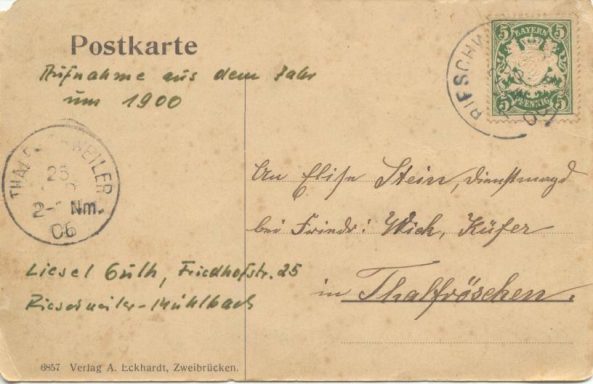 Postkarte
Aufnahme aus dem Jahr
um 1900
BAYERN
5 5
5 5
PFENNIG
RIESCHW
06
THAL WEILER
25
2-3 Nm.
06
An Elise Stein, Dienstmagd
bei Friedr: Wick, Küfer
in Thalfröschen.
Liesel Guth, Friedhofstr. 25
Rieschweiler-Mühlbach
6857 Verlag A. Eckhardt, Zweibrücken.